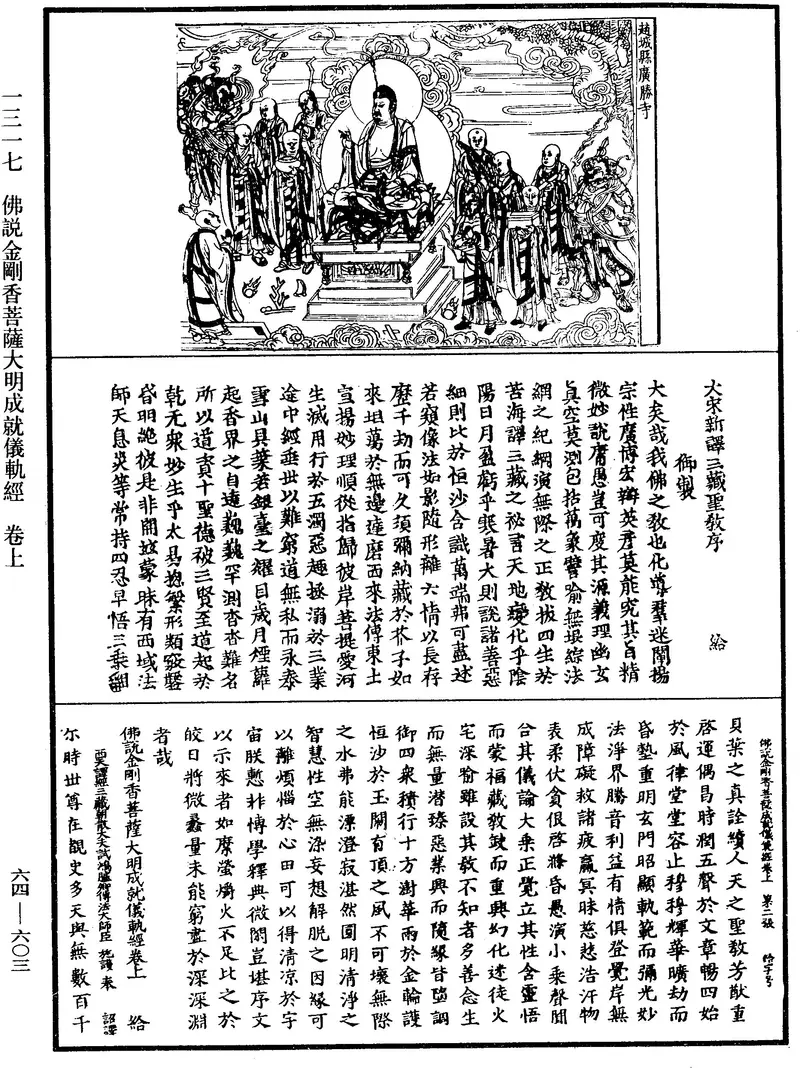 趙城縣廣勝寺
大宋新譯三藏聖教序 給
御製
大矣哉我佛之教也化導羣迷闡揚
宗性廣博宏辯英彥莫能究其旨精
微妙說庸愚豈可度其源義理幽玄
真空莫測包括萬象譬喻無垠綜法
網之紀綱演無際之正教拔四生於
苦海譯三藏之秘言天地變化乎陰
陽日月盈虧乎寒暑大則說諸善惡
細則比於恒沙含識萬端弗可盡述
若窺像法如影隨形離六情以長存
歷千劫而可久須彌納藏於芥子如
來坦蕩於無邊達磨西來法傳東土
宣揚妙理順從指歸彼岸菩提愛河
生滅用行於五濁惡趣拯溺於三業
途中經垂世以難窮道無私而永泰
雪山貝葉若銀臺之耀目歲月煙蘿
起香界之自遠巍巍罕測杳杳難名
所以道資十聖德被三賢至道起於
乾元衆妙生乎太易揔繁形類竅鑿
昏明絕彼是非開茲蒙昧有西域法
師天息災等常持四忍早悟三乘翻
佛說金剛香菩薩成就儀軌經卷上 第二張 給字号
貝葉之真詮續人天之聖教芳猷重
啓運偶昌時潤五聲於文章暢四始
於風律堂堂容止穆穆輝華曠劫而
昏墊重明玄門昭顯軌範而彌光妙
法淨界騰音利益有情俱登覺岸無
成障礙救諸疲羸冥昧慈悲浩汗物
表柔伏貪佷啓迪昏愚演小乘聲聞
合其儀論大乘正覺立其性含靈悟
而蒙福藏教缺而重興幻化迷徒火
宅深喻雖設其教不知者多善念生
而無量潛臻惡業興而隨緣皆墮調
御四衆積行十方澍華雨於金輪護
恒沙於玉闕有頂之風不可壞無際
之水弗能漂澄寂湛然圓明清淨之
智慧性空無染妄想解脫之因緣可
以離煩惱於心田可以得清涼於宇
宙朕慙非博學釋典微閑豈堪序文
以示來者如縻螢爝火不足比之於
皎日將微蠡量未能窮盡於深深淵
者哉
佛說金剛香菩薩大明成就儀軌經卷上 給
西天譯經三藏朝散大夫試鴻臚卿傳法大師臣施護奉 詔譯
尒時世尊在覩史多天與無數百千
一三一七 佛說金剛香菩薩大明成就儀軌經 卷上
六四—六〇三